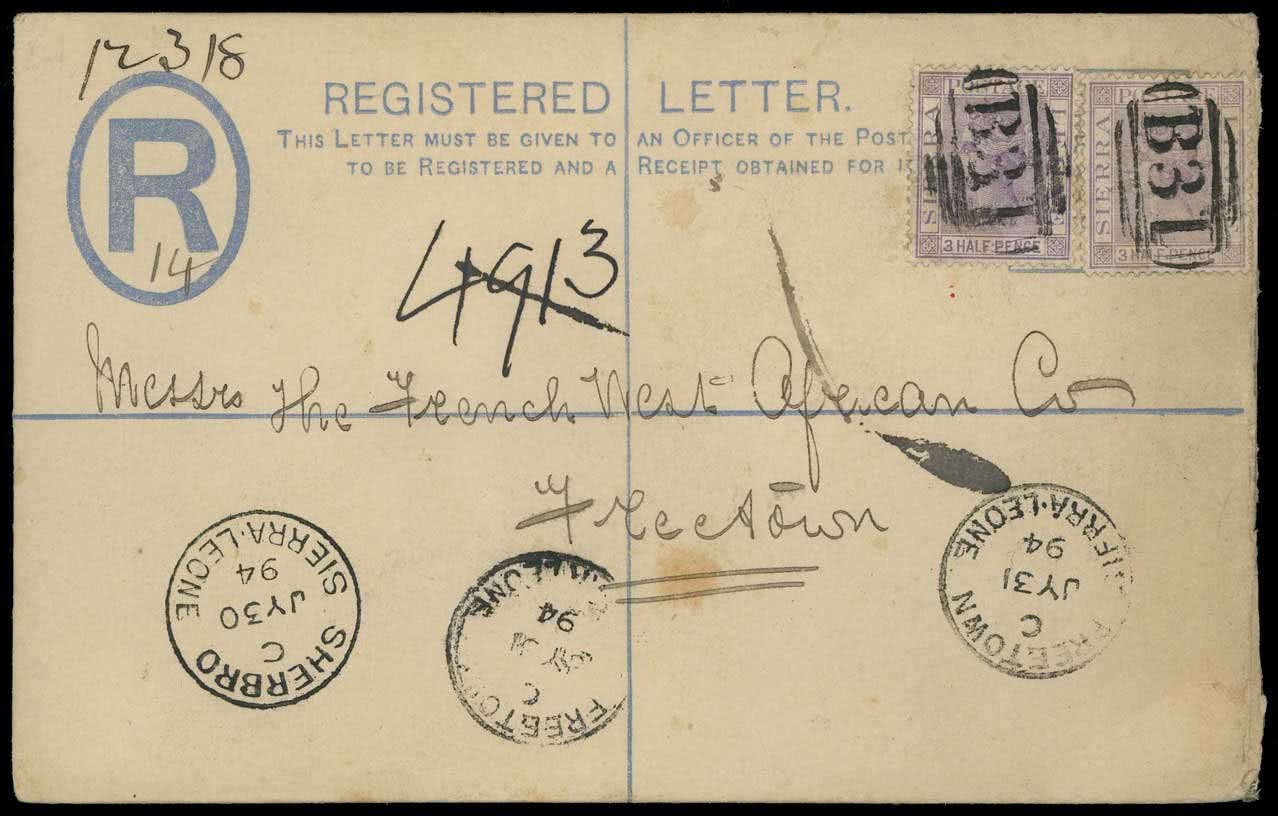 12318
REGISTERED LETTER.
THIS LETTER MUST BE GIVEN TO AN OFFICER OF THE POST
TO BE REGISTERED AND A RECEIPT OBTAINED FOR
R
14
POSTAGE
SIERRA
3 HALF PENCE
B31
SIERRA
3 HALF PENCE
B31
4913
Messrs The French West African Co
Freetown
SHERBRO
C
JY 30
94
SIERRA·LEONE
FREETOWN
C
94
LEONE
FREETOWN
C
JY 31
94
SIERRA·LEONE